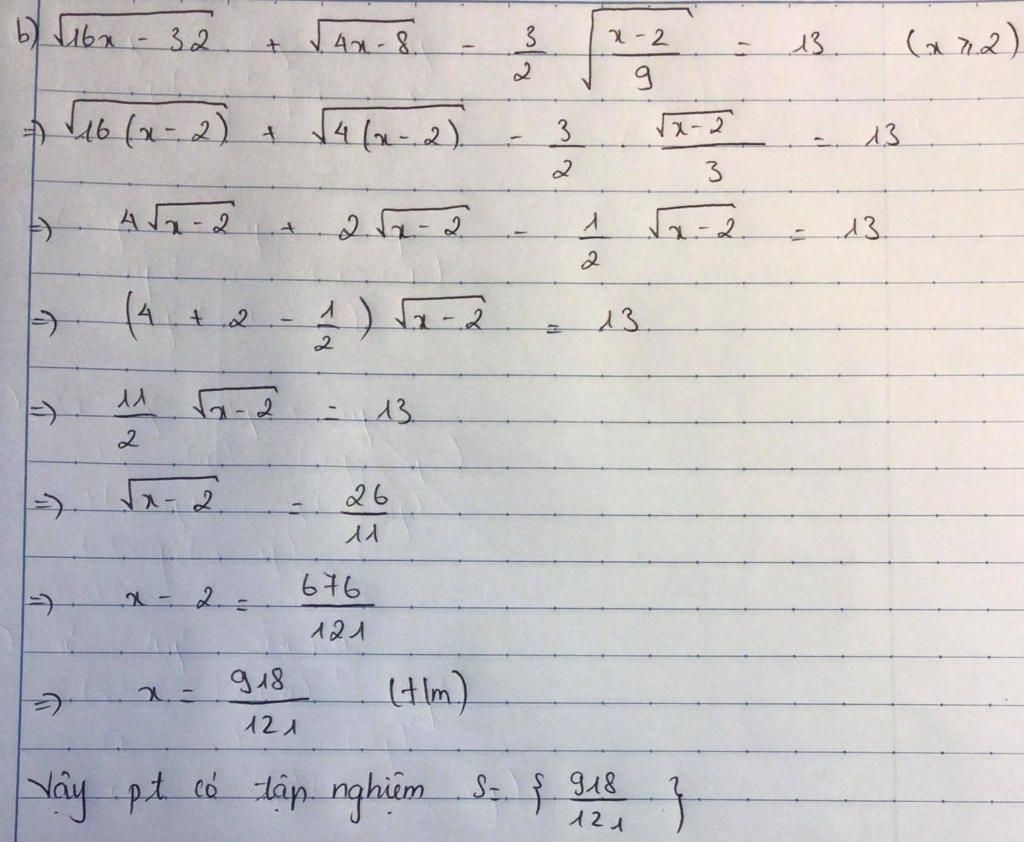 b) √(16x - 32) + √(4x - 8) - 3/2 √((x - 2)/9) = 13 (x ⩾ 2)
=> √(16(x - 2)) + √(4(x - 2)) - 3/2 . √(x - 2)/3 = 13
=> 4√(x - 2) + 2√(x - 2) - 1/2 √(x - 2) = 13
=> (4 + 2 - 1/2) √(x - 2) = 13
=> 11/2 √(x - 2) = 13
=> √(x - 2) = 26/11
=> x - 2 = 676/121
=> x = 918/121 (t/m)
Vậy pt có tập nghiệm S = { 918/121 }